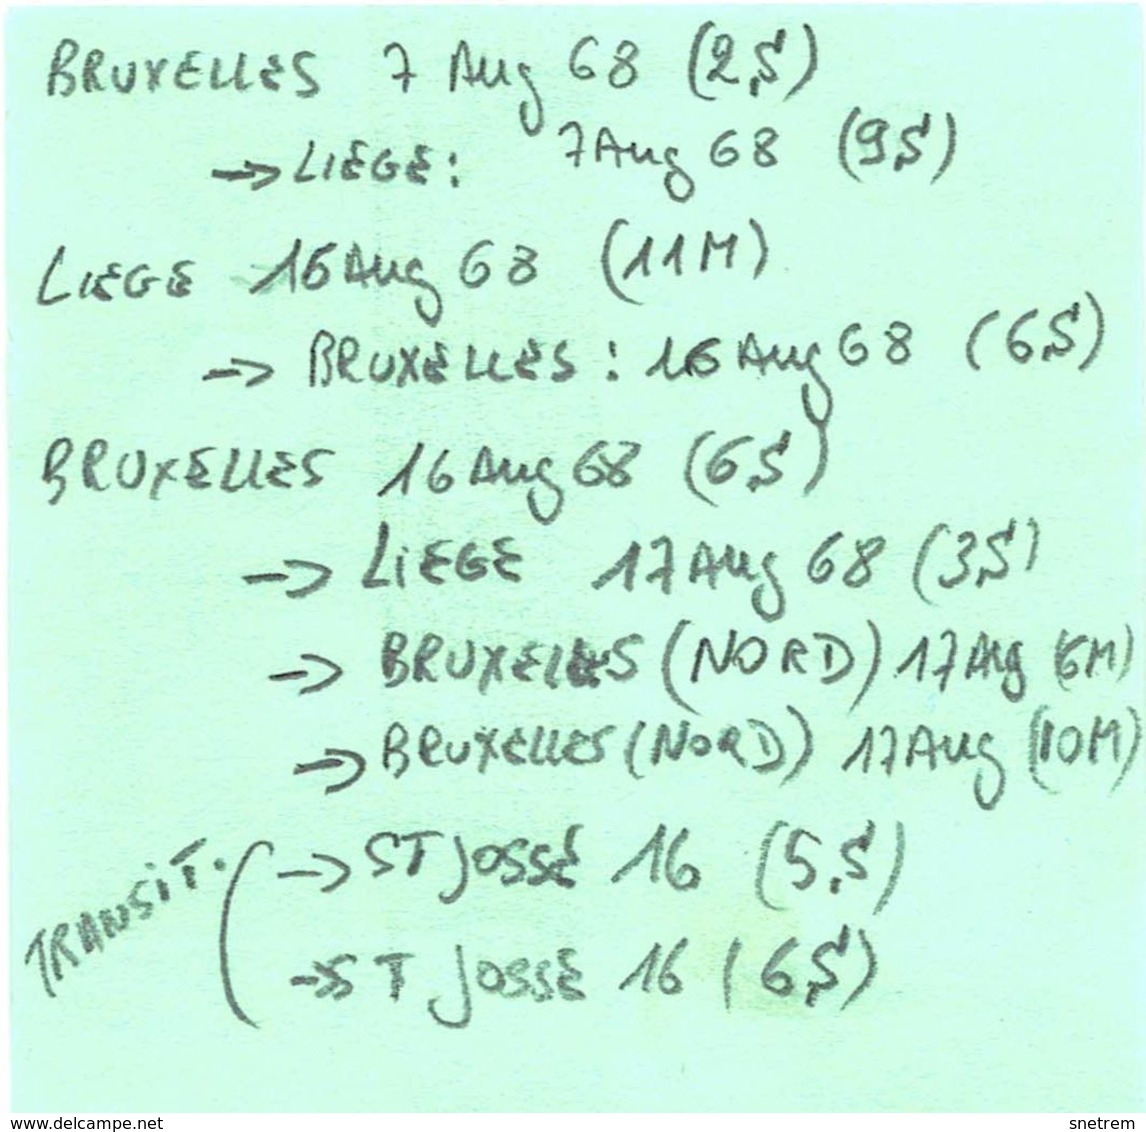 BRUXELLES 7 Aug 68 (2S)
→ LIEGE: 7 Aug 68 (9S)
LIEGE 16 Aug 68 (11M)
→ BRUXELLES: 16 Aug 68 (6S)
BRUXELLES 16 Aug 68 (6S)
→ LiEGE 17 Aug 68 (3S)
→ BRUXELLES (NORD) 17 Aug (6M)
→ BRUXELLES (NORD) 17 Aug (10M)
TRANSiT. ( → ST JOSSE 16 (5S)
→ ST JOSSE 16 (6S)
www.delcampe.net snetrem